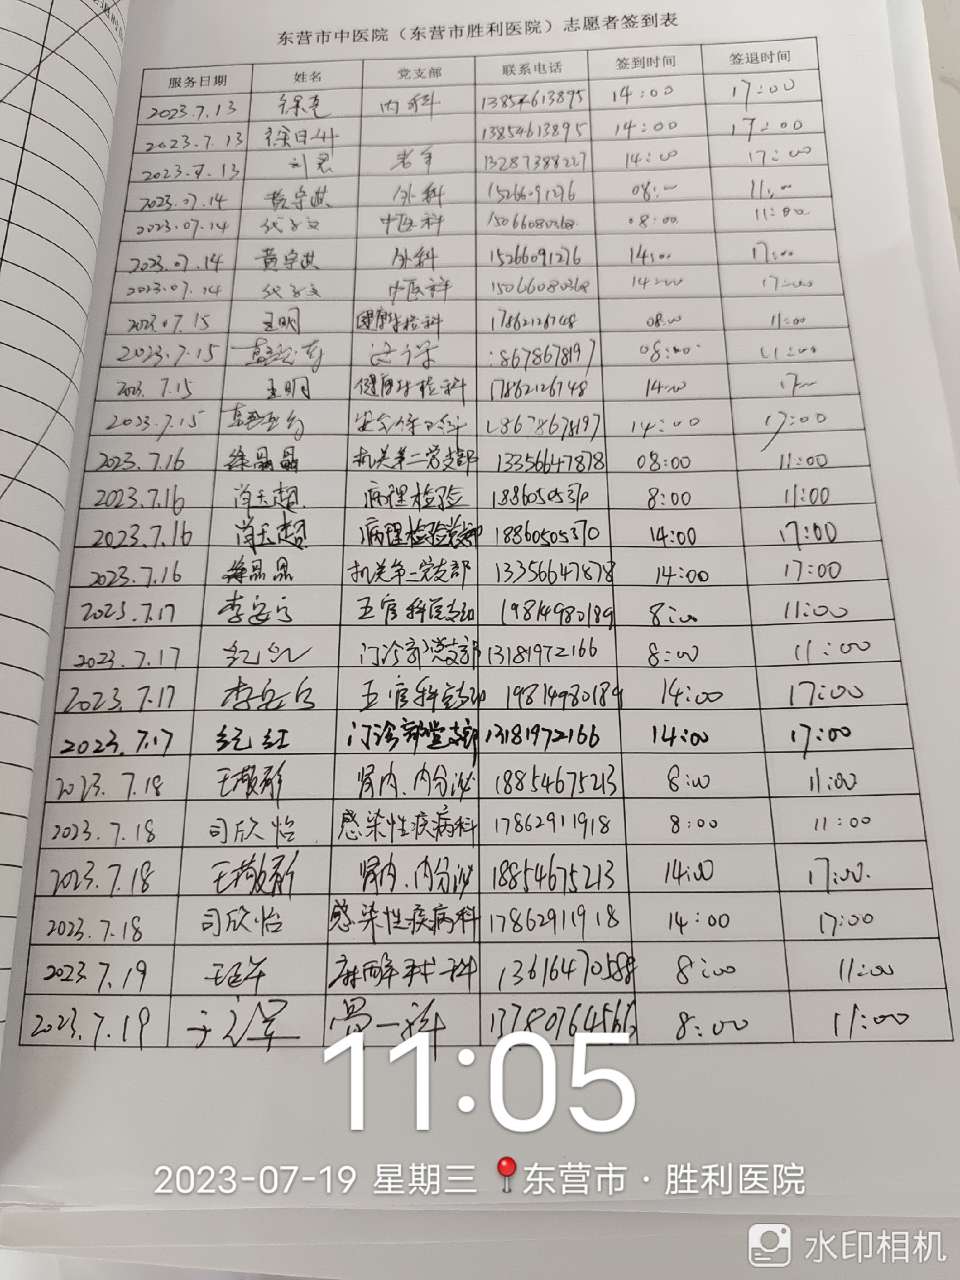 东营市中医院（东营市胜利医院）志愿者签到表
服务日期 姓名 党支部 联系电话 签到时间 签退时间
2023.7.13 内科 13854613895 14:00 17:00
2023.7.13 13854613895 14:00 17:00
2023.7.13 13287388227 14:00 17:00
2023.07.14 外科 15266091276 08:00 11:00
2023.07.14 中医科 15066080368 08:00 11:00
2023.07.14 外科 15266091276 14:00 17:00
2023.07.14 中医科 15066080368 14:00 17:00
2023.07.15 王明 健康体检科 17862126748 08:00 11:00
2023.7.15 18678678197 08:00 11:00
2023.7.15 王明 健康体检科 17862126748 14:00 17:00
2023.7.15 18678678197 14:00 17:00
2023.7.16 徐晶晶 机关第二党支部 13356647878 08:00 11:00
2023.7.16 肖玉超 病理检验 18860505370 8:00 11:00
2023.7.16 肖玉超 病理检验党支部 18860505370 14:00 17:00
2023.7.16 徐晶晶 机关第二党支部 13356647878 14:00 17:00
2023.7.17 五官科党支部 19814980189 8:00 11:00
2023.7.17 纪红 门诊部党支部 13181972166 8:00 11:00
2023.7.17 五官科党支部 19814980189 14:00 17:00
2023.7.17 纪红 门诊部党支部 13181972166 14:00 17:00
2023.7.18 肾内、内分泌 18854675213 8:00 11:00
2023.7.18 司欣怡 感染性疾病科 17862911918 8:00 11:00
2023.7.18 肾内、内分泌 18854675213 14:00 17:00
2023.7.18 司欣怡 感染性疾病科 17862911918 14:00 17:00
2023.7.19 麻醉手术科 13616470588 8:00 11:00
2023.7.19 骨一科 8:00 11:00
11:05
2023-07-19 星期三 东营市·胜利医院
水印相机